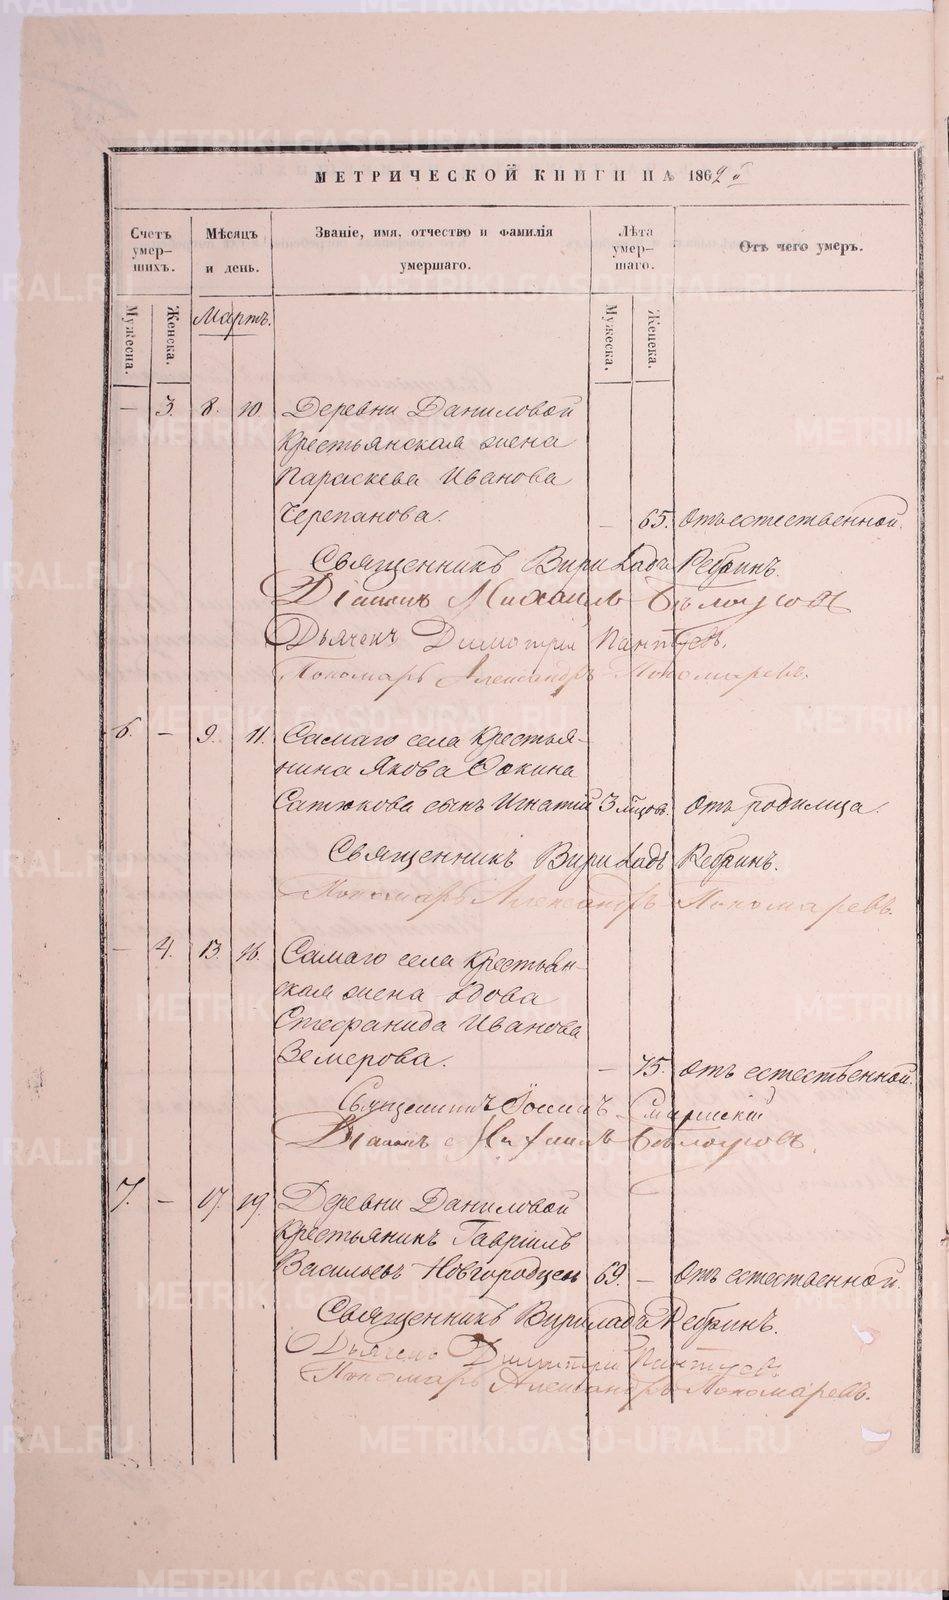 МЕТРИЧЕСКОЙ КНИГИ НА 1862й
Счетъ умер-шихъ.
Мѣсяцъ и день.
Званіе, имя, отчество и фамилія умершаго.
Лѣта умер-шаго.
Отъ чего умеръ.
Мужеска.
Женска.
Мартъ.
Мужеска.
Женска.
— 3. 8. 10. Деревни Даниловой
Крестьянская жена
Параскева Иванова
Черепанова. — 65. Отъ естественной.
Священникъ Ребринъ.
Діаконъ Михаилъ Бѣлоусовъ
Дьячекъ Димитрій
Пономарь Александръ Пономаревъ.
6. — 9. 11. Самаго села Крестья-
нина Якова Фокина
Сатюкова сынъ Игнатій 3 мѣсцовъ. Отъ родимца.
Священникъ Ребринъ.
Пономарь Александръ Пономаревъ.
— 4. 13. 16. Самаго села Крестьян-
ская жена вдова
Стефанида Иванова
Земерова. — 75. Отъ естественной.
Священникъ Смирнскій
Діаконъ Михаилъ Бѣлоусовъ.
7. — 17. 19. Деревни Даниловой
Крестьянинъ Гавріилъ
Васильевъ Новгородцевъ 69. — Отъ естественной.
Священникъ Ребринъ.
Дьячекъ Димитрій
Пономарь Александръ Пономаревъ.
METRIKI.GASO-URAL.RU